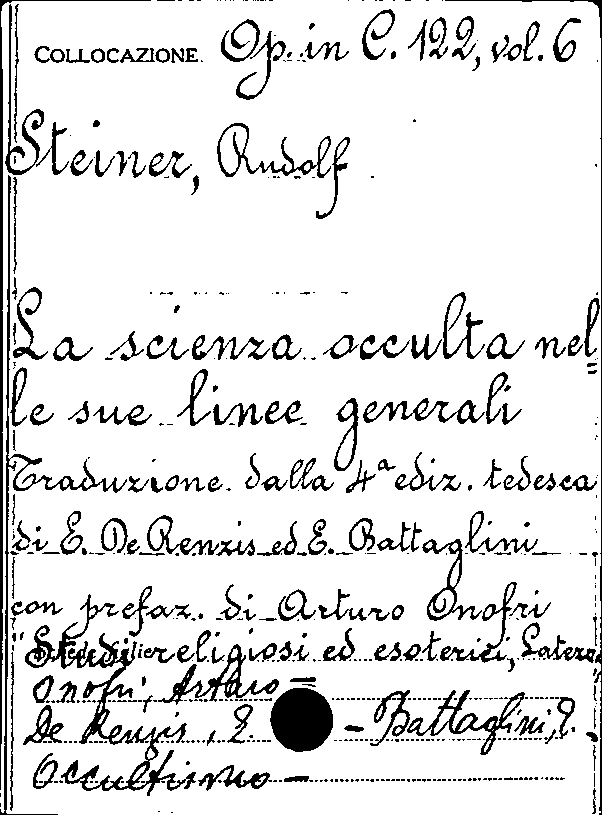 COLLOCAZIONE Op. in C. 122, vol. 6
Steiner, Rudolf
La scienza occulta nel=
le sue linee generali
Traduzione dalla 4ª ediz. tedesca
di E. De Renzis ed E. Battaglini
con prefaz. di Arturo Onofri
"Studi religiosi ed esoterici, Laterza"
Onofri, Arturo =
De Renzis, E. - Battaglini, E. -
Occultismo -